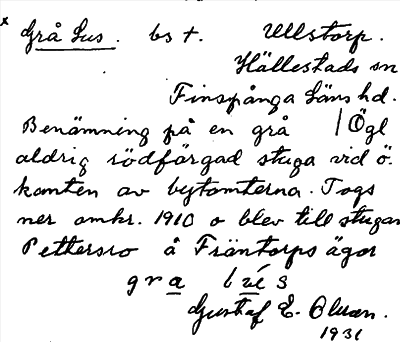 x Grå Lus. bst. Ullstorp.
Hällestads sn
Finspånga Läns hd.
Benämning på en grå / Ögl
aldrig rödfärgad stuga vid ö.
kanten av bytomterna. Togs
ner omkr. 1910 o blev till stugan
Pettersro å Fräntorps ägor
gra
Gustaf E. Olsson.
1931